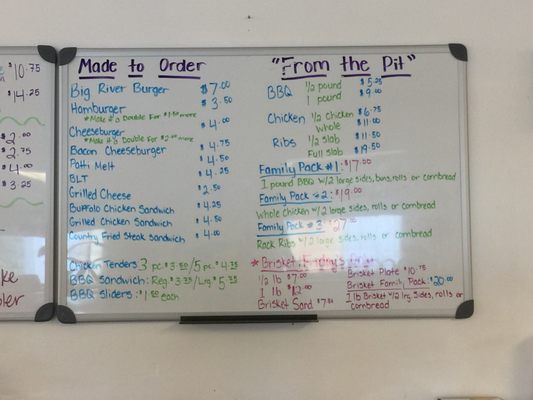 $10.75
$14.25
$2.00
$2.75
$4.00
$3.25
Made to Order
Big River Burger $7.00
Hamburger $3.50
*Make it a Double For $1.50 more
Cheeseburger $4.00
*Make it a Double For more
Bacon Cheeseburger $4.75
Patti Melt $4.50
BLT $4.25
Grilled Cheese $2.50
Buffalo Chicken Sandwich $4.25
Grilled Chicken Sandwich $4.50
Country Fried Steak Sandwich $4.00
Chicken Tenders 3 pc. $3.50/5 pc. $4.75
BBQ Sandwich: Reg. $3.50/Lrg $5.25
BBQ Sliders: $1.50 each
"From the Pit"
BBQ 1/2 pound $5.25
1 pound $9.00
Chicken 1/2 chicken $6.75
whole $11.00
Ribs 1/2 slab $11.50
Full slab $19.50
Family Pack #1: $17.00
1 pound BBQ w/2 large sides, buns, rolls or cornbread
Family Pack #2: $19.00
Whole Chicken w/2 large sides, rolls or cornbread
Family Pack #3: $27.00
Rack Ribs w/2 large sides, rolls or cornbread
*Brisket: Friday's Only*
1/2 lb $7.00
1 lb $12.00
Brisket Sand $7.50
Brisket Plate $10.75
Brisket Family Pack: $20.00
1 lb Brisket w/2 lrg. Sides, rolls or cornbread